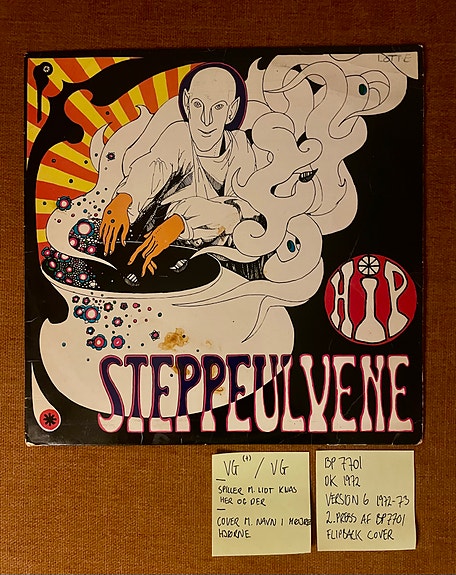 LOTTE
HIP
STEPPEULVENE
VG (+) / VG
SPILLER M. LIDT KNAS
HER OG DER
COVER M. NAVN I HØJRE
HJØRNE
BP 7701
DK 1972
VERSION 6 1972-73
2. PRESS AF BP7701
FLIPBACK COVER